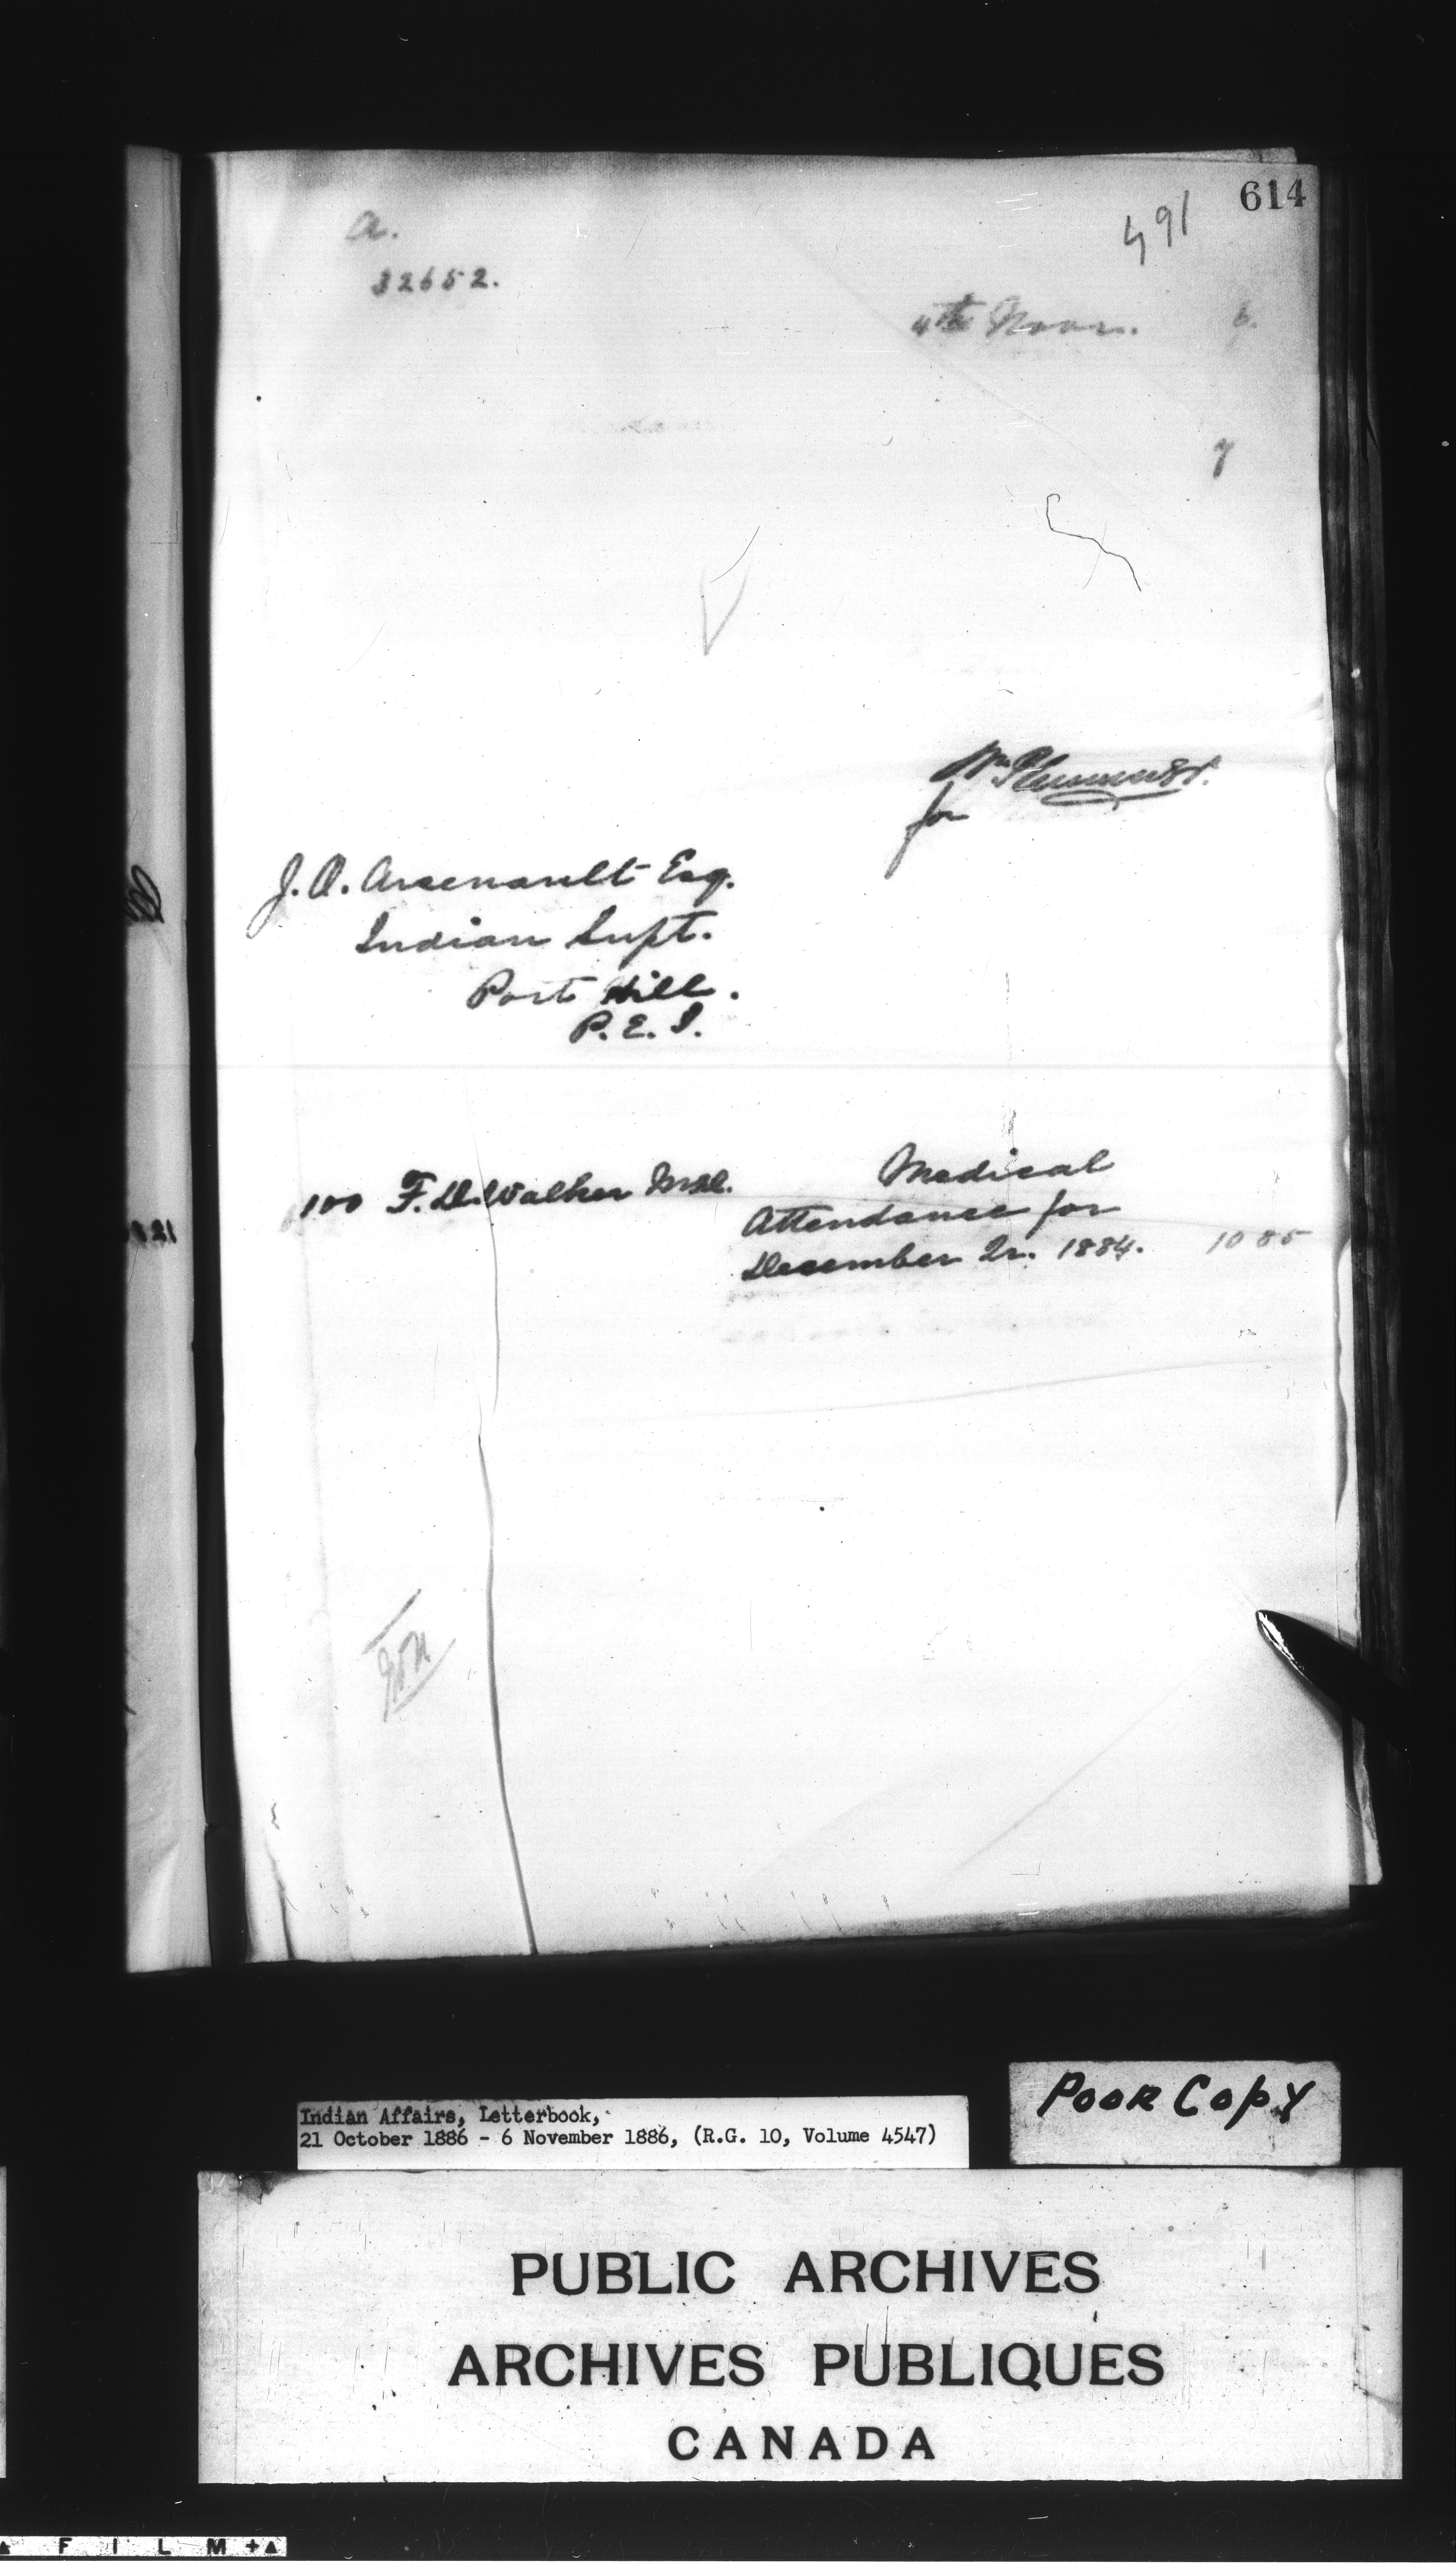 614
491
a.
32652.
4th Novr. 6.
7
Wm Plummer
for
J. O. Arsenault Esq.
Indian Supt.
Port Hill.
P. E. I.
100 F. D. Walker M.D. Medical
Attendance for
December Qr. 1884. 10 85
Indian Affairs, Letterbook,
21 October 1886 - 6 November 1886, (R.G. 10, Volume 4547)
POOR COPY
PUBLIC ARCHIVES
ARCHIVES PUBLIQUES
CANADA
F I L M